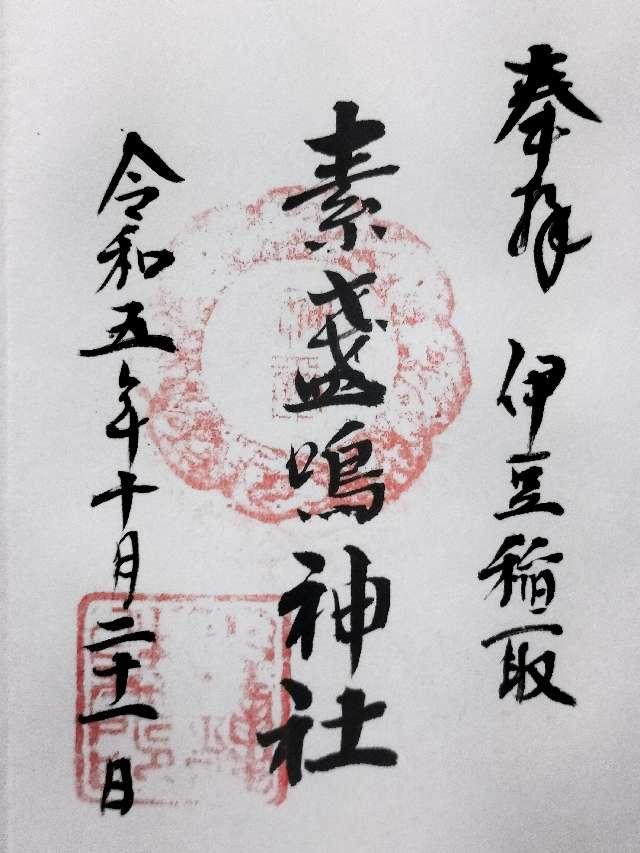 奉拝 伊豆稲取
素盞鳴神社
令和五年十月二十一日